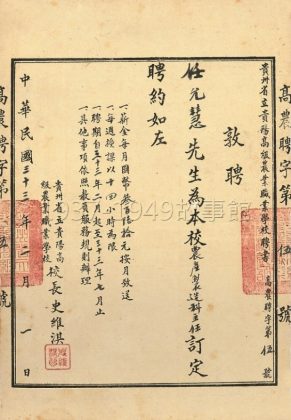 高農聘字第伍號
貴州省立貴陽高級農業職業學校聘書 高農聘字第伍號
敦聘
任允慧先生為本校農產製造科主任訂定
聘約如左
一、薪金每月國幣叁百陸拾元按月致送
一、每週授課以十四小時為限
一、聘期自三十三年二月起至三十三年七月止
一、其他事項依照教員服務規則辦理
貴州省立貴陽高級農業職業學校 校長史維淇
中華民國三十三年二月一日
高農聘字第伍號
1949故事館